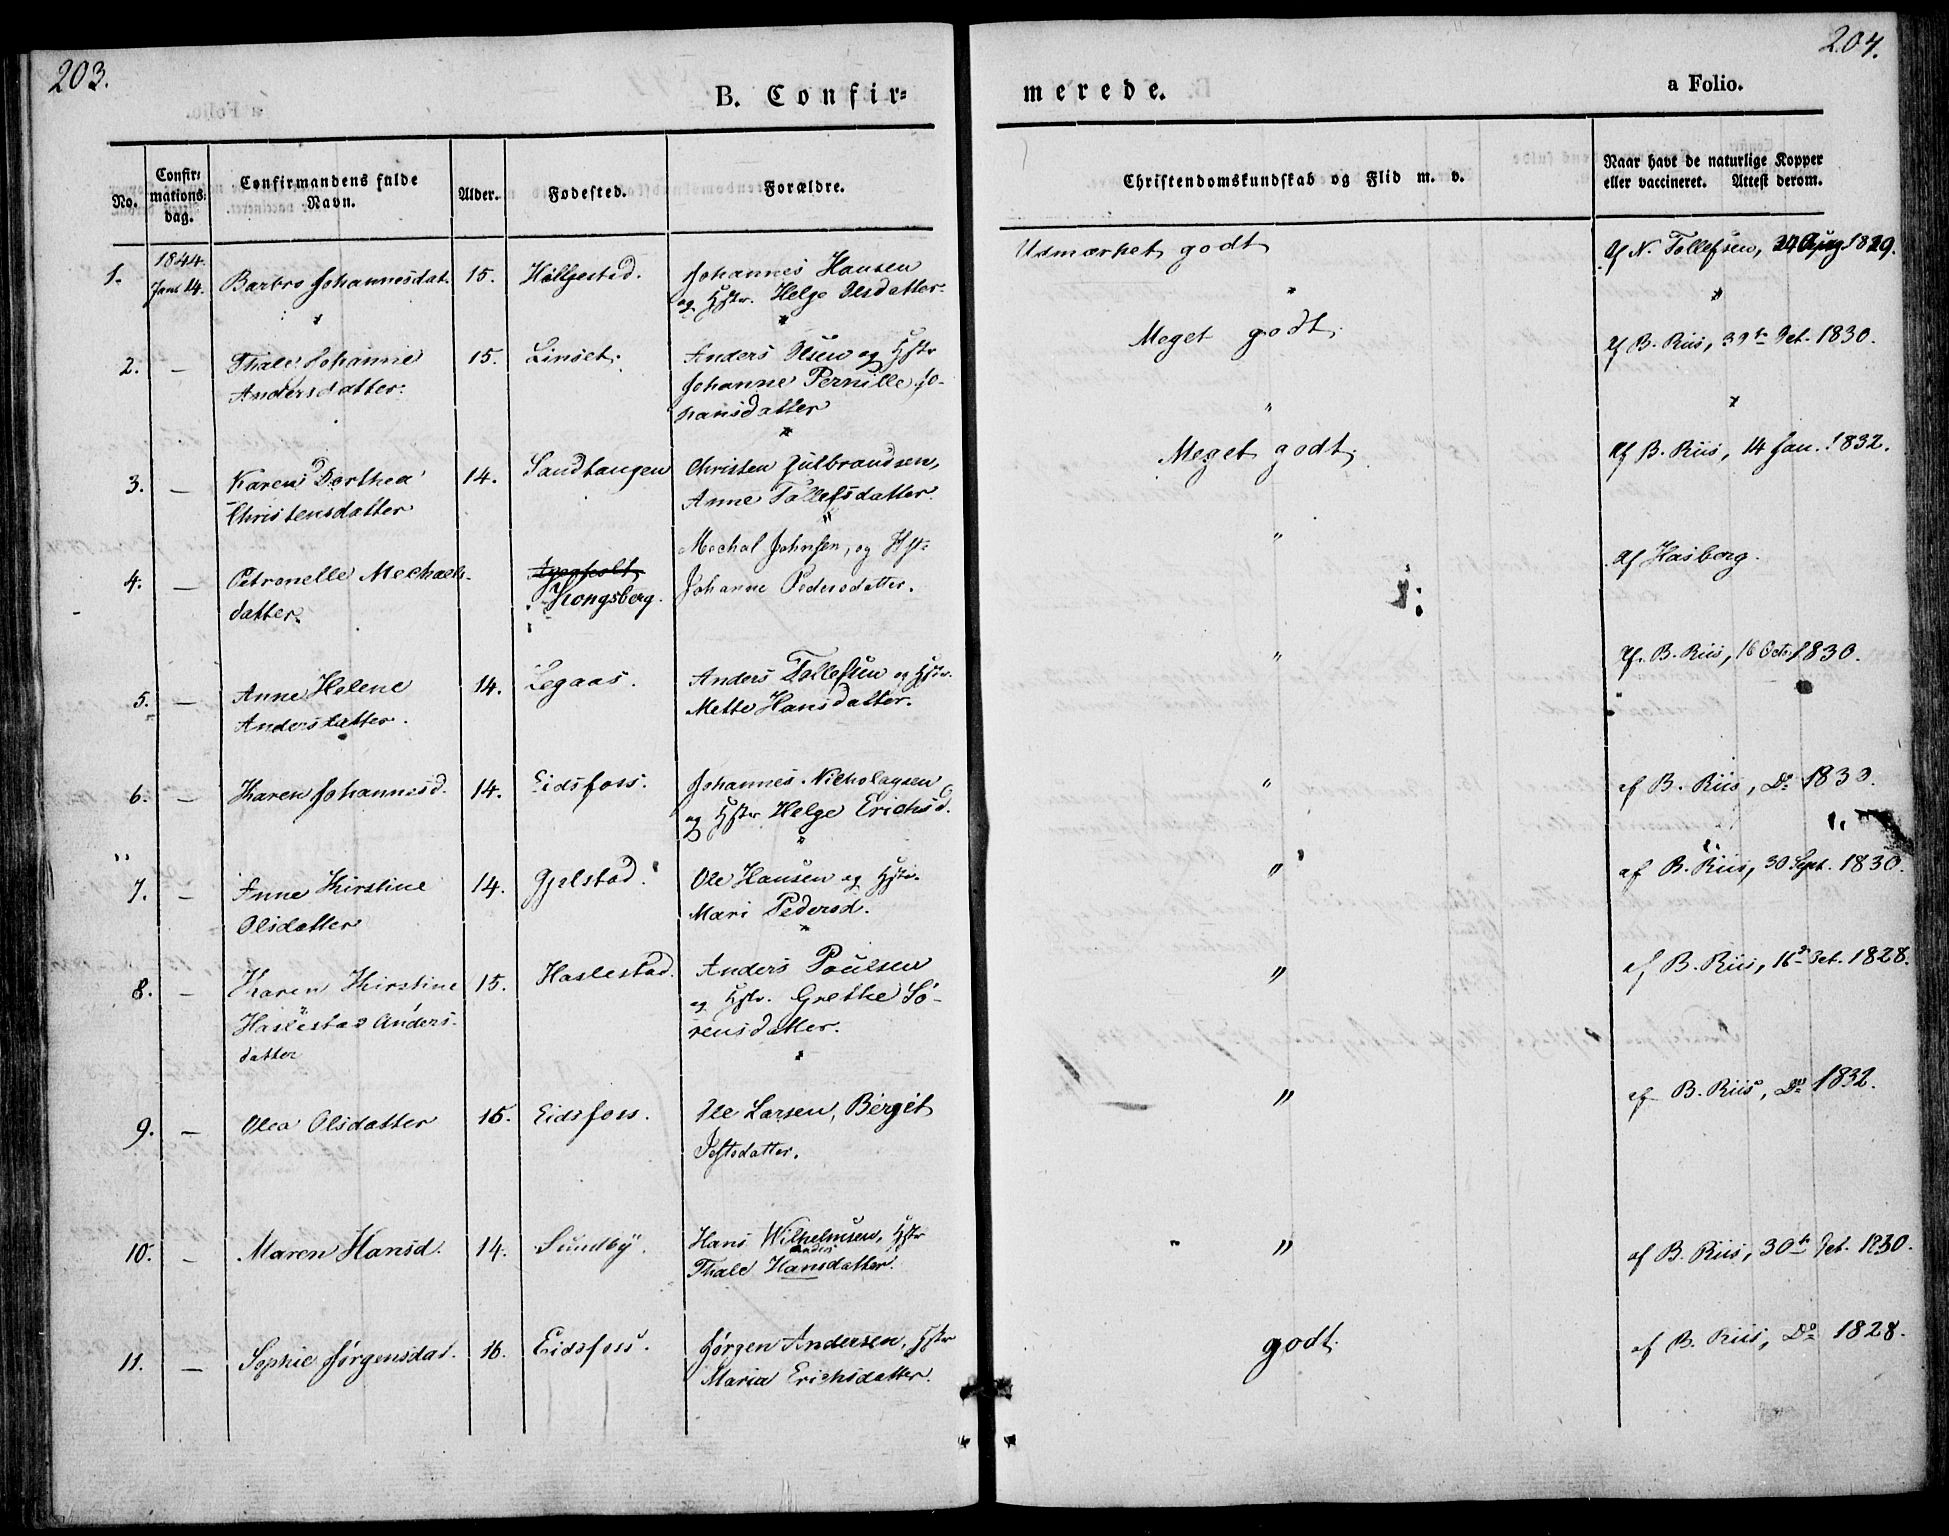 203.
B. Confir=
No.
Confir=
mations=
dag.
Confirmandens fulde
Navn.
Alder.
Fødested.
Forældre.
1844.
1.
Barbro Johannesdat.
15.
Johannes Hansen
og Hstr. Helge Olsdatter.
2.
—
Thale Johanne
Andersdatter.
15.
Linset.
Anders Olsen og Hstr
Johanne Pernille Jo-
hansdatter
3.
—
Karen Dorthea
Christensdatter
14.
Sandhaugen
Christen Gulbrandsen,
Anne Tollefsdatter.
4.
—
Petronelle Mechaels-
datter.
Kongsberg.
Mechal Johnsen, og Hst:
Johanne Pedersdatter.
5.
—
Anne Helene
Andersdatter.
14.
Legaas.
Anders Tollefsen og Hstr.
Mette Hansdatter.
6.
—
Karen Johannesd.
14.
Eidsfoss.
Johannes Nicholaysen
og Hstr Helge Erichsd.
7.
—
Anne Kirstine
Olsdatter
14.
Gjelstad.
Ole Hansen og Hstr.
Mari Pedersd.
8.
—
Karen Kirstine
Haslestad Anders-
datter
15.
Haslestad.
Anders Poulsen
og Hstr. Grethe Sö-
rensdatter.
9.
—
Olea Olsdatter
15.
Eidsfoss.
Ole Larsen, Bergit
10.
—
Maren Hansd.
14.
Sundby.
Hans Wilhelmsen, Hstr
Anders
Thale Hansdatter.
11.
—
Sophie Jørgensdat.
16.
Eidsfoss.
Jørgen Andersen, Hstr
Maria Erichsdatter.
204.
merede.
a Folio.
Christendomskundskab og Flid m. v.
Naar havt de naturlige Kopper
eller vaccineret. Attest derom.
Udmærket godt
Af N. Tollefsen, 1829.
Meget godt.
Af B. Riis, 1830.
"
Meget godt.
Af B. Riis, 14 Jan. 1832.
"
Af Hasberg.
"
Af B. Riis, 16 Octo 1830.
"
af B. Riis, Do 1830.
"
af B. Riis, 30 Sept. 1830.
"
af B. Riis, 1828.
"
af B. Riis, Do 1832.
"
af B. Riis, 1830.
godt.
af B. Riis, Do 1828.